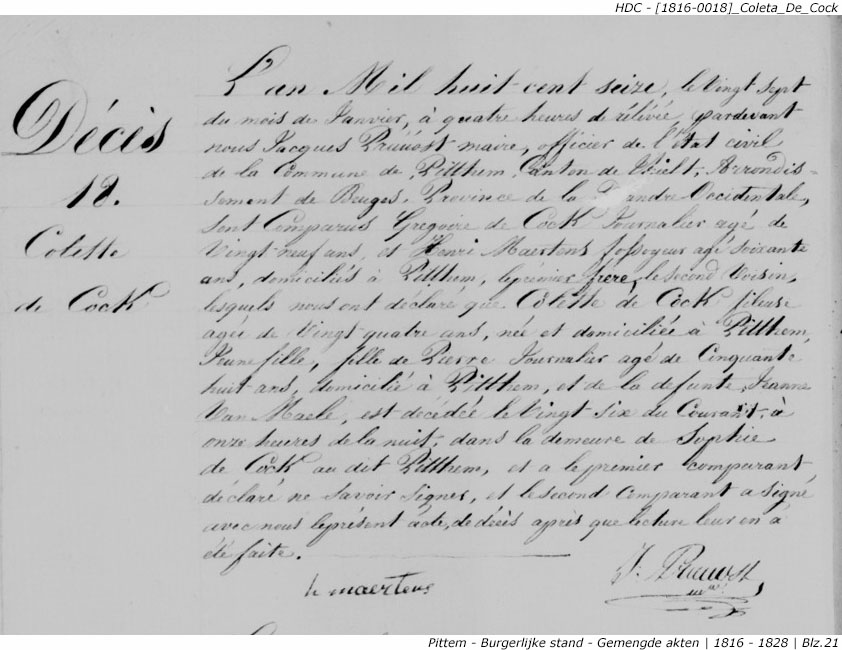 HDC - [1816-0018]_Coleta_De_Cock
Décès
18.
Colette
de Cock
L'an Mil huit-cent seize, le Vingt sept
du mois de Janvier, à quatre heures de rélévée, pardevant
nous Jacques Pruuost maire, officier de l'Etat civil
de la Commune de Pitthem, Canton de Thielt, Arrondis-
sement de Bruges, Province de la Flandre Occidentale,
sont Comparus Gregoire de Cock Journalier agé de
Vingt-neuf ans, et Henri Maertens fossoyeur agé soixante
ans, domiciliés à Pitthem, le premier frere, le second Voisin,
lesquels nous ont déclaré que Colette de Cock fileuse
agée de Vingt quatre ans, née et domiciliée à Pitthem,
Jeune fille, fille de Pierre Journalier agé de Cinquante
huit ans, domicilié à Pitthem, et de la defunte Jeanne
Van Maele, est décédée le Vingt six du Courant, à
onze heures de la nuit, dans la demeure de Sophie
de Cock au dit Pitthem, et a le premier comparant
déclaré ne savoir signer, et le second Comparant a signé
avec nous le présent acte, de décès après que lecture leur en a
été faite.
h maertens
J. Pruuost
Pittem - Burgerlijke stand - Gemengde akten | 1816 - 1828 | Blz.21